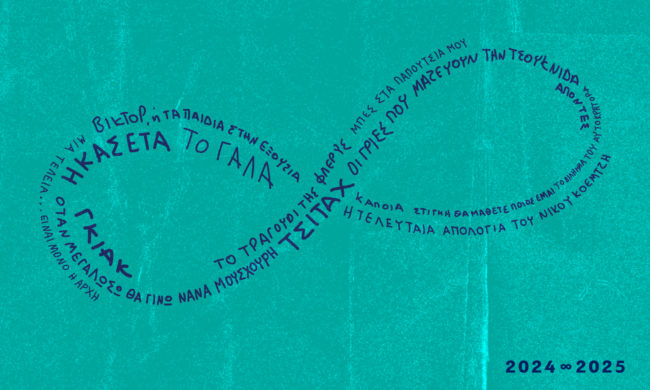 ΜΙΑ ΤΕΛΕΙΑ... ΕΙΝΑΙ ΜΟΝΟ Η ΑΡΧΗ
ΒΙΚΤΟΡ, ή ΤΑ ΠΑΙΔΙΑ ΣΤΗΝ ΕΞΟΥΣΙΑ
ΗΚΑΣΕΤΑ
ΤΟ ΓΑΛΑ
ΓΚΙΑΚ
ΟΤΑΝ ΜΕΓΑΛΩΣΩ ΘΑ ΓΙΝΩ ΝΑΝΑ ΜΟΥΣΧΟΥΡΗ
ΤΟ ΤΡΑΓΟΥΔΙ ΤΗΣ ΦΛΕΡΥΣ
ΜΠΕΣ ΣΤΑ ΠΑΠΟΥΤΣΙΑ ΜΟΥ
ΤΣΙΤΑΧ
ΟΙ ΓΡΙΕΣ ΠΟΥ ΜΑΖΕΥΟΥΝ ΤΗΝ ΤΣΟΥΚΝΙΔΑ
ΑΠΟΝΤΕΣ
ΚΑΠΟΙΑ ΣΤΙΓΜΗ ΘΑ ΜΑΘΕΤΕ ΠΟΙΟΣ ΕΙΜΑΙ
ΤΟ ΜΗΝΥΜΑ ΤΟΥ ΑΥΤΟΚΡΑΤΟΡΑ
Η ΤΕΛΕΥΤΑΙΑ ΑΠΟΛΟΓΙΑ ΤΟΥ ΝΙΚΟΥ ΚΟΕΜΤΖΗ
2024∞2025